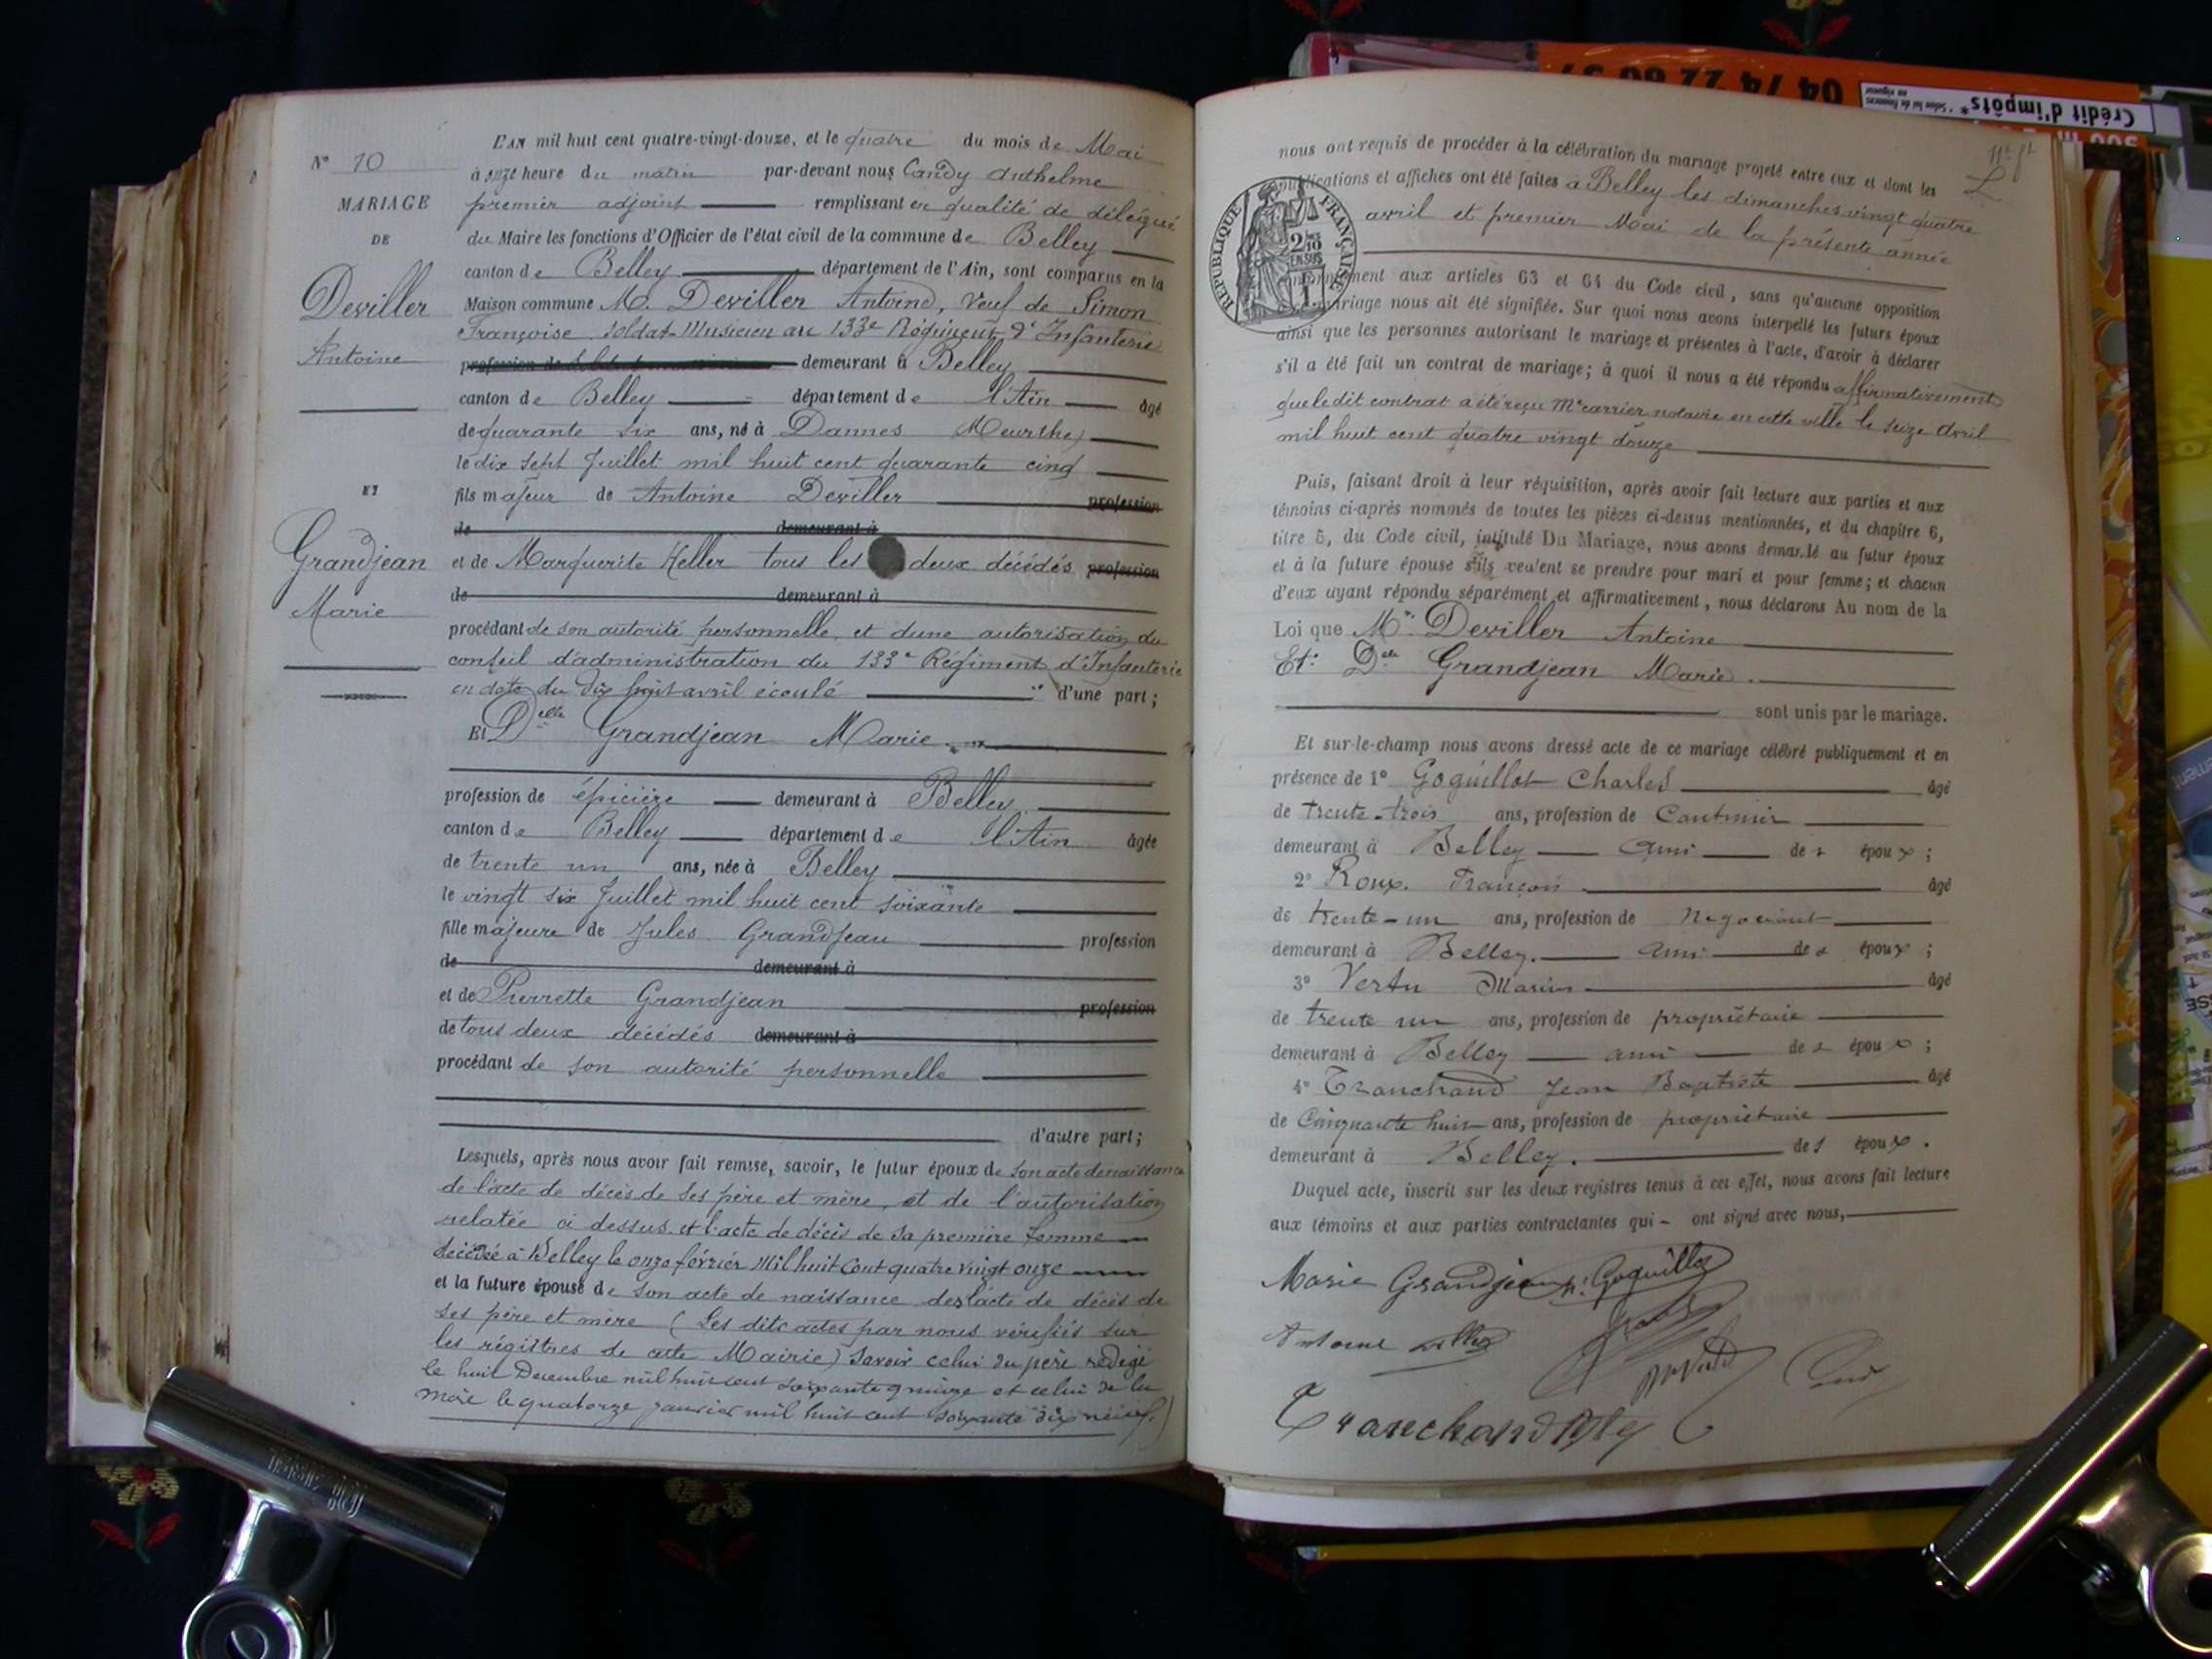 L'AN mil huit cent quatre-vingt-douze, et le quatre du mois de Mai
N° 10
à onze heure du matin par-devant nous Candy Anthelme
MARIAGE
premier adjoint remplissant en qualité de délégué
DE
du Maire les fonctions d'Officier de l'état civil de la commune de Belley
canton de Belley département de l'Ain, sont comparus en la
Deviller
Maison commune M. Deviller Antoine, Veuf de Simon
Françoise soldat Musicien au 133e Régiment d'Infanterie
Antoine
profession de demeurant à Belley
canton de Belley département de l'Ain âgé
de quarante six ans, né à Dannes (Meurthe)
le dix sept Juillet mil huit cent quarante cinq
ET
fils majeur de Antoine Deviller profession
de demeurant à
Grandjean
et de Marguerite Keller tous les deux décédés profession
Marie
de demeurant à
procédant de son autorité personnelle, et d'une autorisation du
conseil d'administration du 133e Régiment d'Infanterie
en date du dix huit avril écoulé d'une part ;
Et Delle Grandjean Marie
profession de épicière demeurant à Belley
canton de Belley département de l'Ain âgée
de trente un ans, née à Belley
le vingt six Juillet mil huit cent soixante
fille majeure de Jules Grandjean profession
de demeurant à
et de Pierrette Grandjean profession
de tous deux décédés demeurant à
procédant de son autorité personnelle
d'autre part ;
Lesquels, après nous avoir fait remise, savoir, le futur époux de son acte de naissance
de l'acte de décès de ses père et mère, et de l'autorisation
relatée ci dessus et l'acte de décès de sa première femme
décédée à Belley le onze février Mil huit Cent quatre vingt onze
et la future épouse de son acte de naissance des l'acte de décès de
ses père et mère (Les dits actes par nous vérifiés sur
les régistres de cette Mairie) Savoir celui du père redigé
le huit Decembre mil huit cent soixante quinze et celui de la
mère le quatorze janvier mil huit cent soixante dix neuf)
nous ont requis de procéder à la célébration du mariage projeté entre eux et dont les
publications et affiches ont été faites à Belley les dimanches vingt quatre
avril et premier Mai de la présente année
RÉPUBLIQUE FRANÇAISE
2/10 EN SUS
conformément aux articles 63 et 64 du Code civil, sans qu'aucune opposition
mariage nous ait été signifiée. Sur quoi nous avons interpellé les futurs époux
ainsi que les personnes autorisant le mariage et présentes à l'acte, d'avoir à déclarer
s'il a été fait un contrat de mariage ; à quoi il nous a été répondu affirmativement
que le dit contrat a été reçu Me carrier notaire en cette ville le seize Avril
mil huit cent quatre vingt douze
Puis, faisant droit à leur réquisition, après avoir fait lecture aux parties et aux
témoins ci-après nommés de toutes les pièces ci-dessus mentionnées, et du chapitre 6,
titre 5, du Code civil, intitulé Du Mariage, nous avons demandé au futur époux
et à la future épouse s'ils veulent se prendre pour mari et pour femme ; et chacun
d'eux ayant répondu séparément et affirmativement, nous déclarons Au nom de la
Loi que Mr. Deviller Antoine
Et Delle Grandjean Marie
sont unis par le mariage.
Et sur-le-champ nous avons dressé acte de ce mariage célébré publiquement et en
présence de 1° Goguillot Charles âgé
de trente-trois ans, profession de Cantinier
demeurant à Belley ami des époux ;
2° Roux François âgé
de trente-un ans, profession de Negociant
demeurant à Belley. ami des époux ;
3° Vertu Marius âgé
de trente un ans, profession de propriétaire
demeurant à Belley ami des époux ;
4° Tranchand Jean Baptiste âgé
de Cinquante huit ans, profession de propriétaire
demeurant à Belley. des époux.
Duquel acte, inscrit sur les deux registres tenus à cet effet, nous avons fait lecture
aux témoins et aux parties contractantes qui ont signé avec nous,
Marie Grandjean Goguillot
Antoine
Tranchand
04 74 22 60 37
Crédit d'impôts*